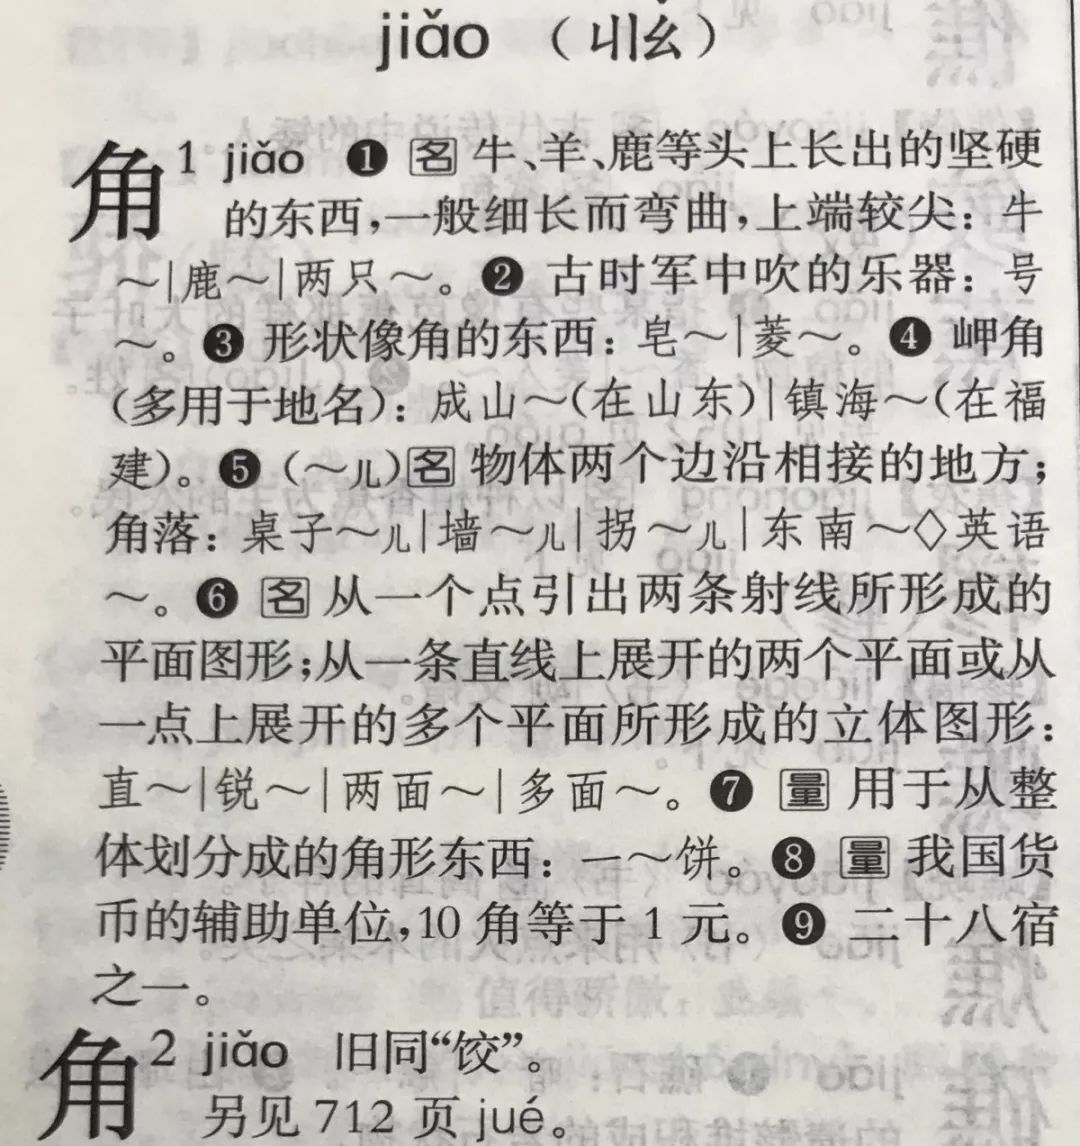 jiǎo （ㄐㄧㄠˇ）
角1 jiǎo ❶ 名 牛、羊、鹿等头上长出的坚硬
的东西，一般细长而弯曲，上端较尖：牛
～|鹿～|两只～。❷ 古时军中吹的乐器：号
～。❸ 形状像角的东西：皂～|菱～。❹ 岬角
（多用于地名）：成山～（在山东）|镇海～（在福
建）。❺（～儿）名 物体两个边沿相接的地方；
角落：桌子～儿|墙～儿|拐～儿|东南～◇英语
～。❻ 名 从一个点引出两条射线所形成的
平面图形；从一条直线上展开的两个平面或从
一点上展开的多个平面所形成的立体图形：
直～|锐～|两面～|多面～。❼ 量 用于从整
体划分成的角形东西：一～饼。❽ 量 我国货
币的辅助单位，10 角等于 1 元。❾ 二十八宿
之一。
角2 jiǎo 旧同“饺”。
另见 712 页 jué。